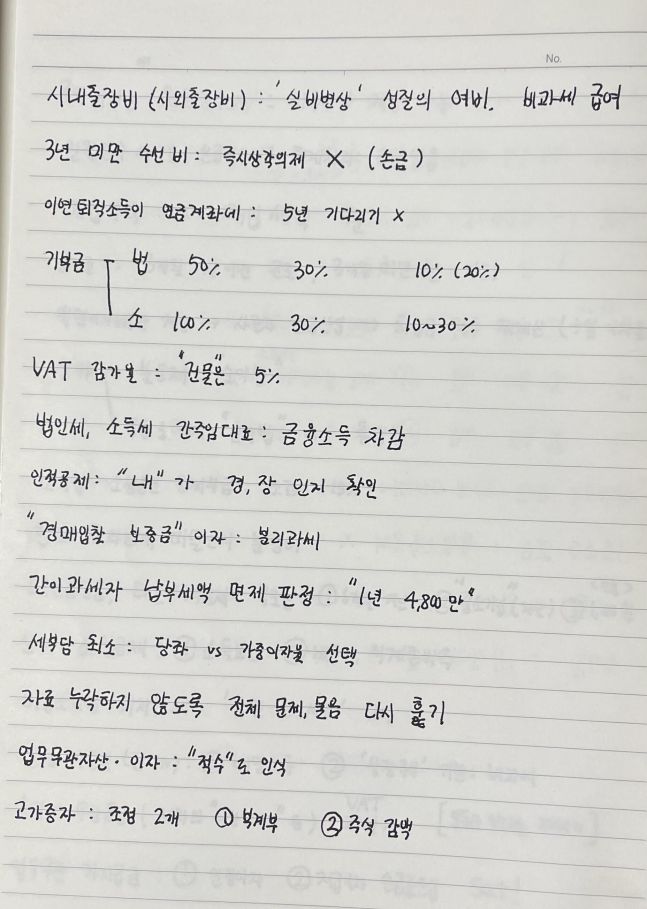 No.
시내출장비 (시외출장비) : '실비변상' 성질의 여비. 비과세 급여
3년 미만 수선비 : 즉시상각의제 X (손금)
이연퇴직소득이 연금계좌에 : 5년 기다리기 x
기부금 법 50% 30% 10% (20%)
소 100% 30% 10~30%
VAT 감가율 : "건물"은 5%
법인세, 소득세 간주임대료 : 금융소득 차감
인적공제 : "내"가 경, 장 인지 확인
"경매입찰 보증금" 이자 : 분리과세
간이과세자 납부세액 면제 판정 : "1년 4,800만"
세부담 최소 : 당좌 vs 가중이자율 선택
자료 누락하지 않도록 전체 문제, 물음 다시 훑기
업무무관자산·이자 : "적수"로 인식
고가증자 : 조정 2개 ① 부계부 ② 주식 감액